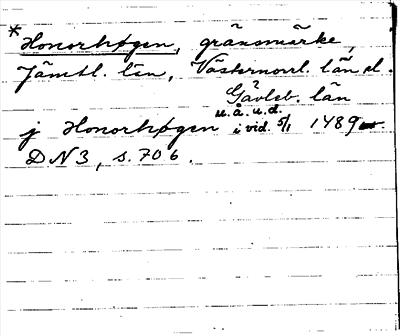 *Honorhøgen, gränsmärke,
Jämtl. län, Västernorrl. län el.
Gävleb. län
j Honorhøgen u.å.u.d. i vid. 5/1 1489
DN3, s. 706.